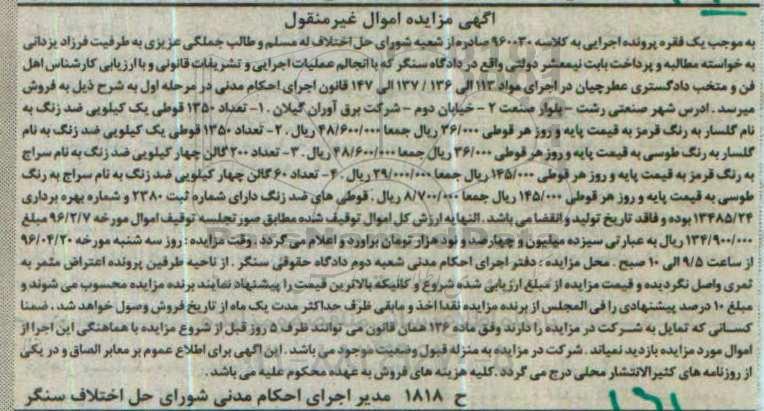 آگهی مزایده اموال غیرمنقول
به موجب یک فقره پرونده اجرایی به کلاسه ۹۶۰۰۳۰ صادره از شعبه شورای حل اختلاف له مسلم و طالب جملگی عزیزی به طرفیت فرزاد یزدانی
به خواسته مطالبه و پرداخت بابت نیمعشر دولتی واقع در دادگاه سنگر که با انجام عملیات اجرایی و تشریفات قانونی و با ارزیابی کارشناس اهل
فن و منتخب دادگستری عطرچیان در اجرای مواد ۱۱۳ الی ۱۳۶ / ۱۳۷ الی ۱۴۷ قانون اجرای احکام مدنی در مرحله اول به شرح ذیل به فروش
میرسد . ادرس شهر صنعتی رشت - بلوار صنعت ۲ - خیابان دوم - شرکت برق آوران گیلان . ۱- تعداد ۱۳۵۰ قوطی یک کیلویی ضد زنگ به
نام گلسار به رنگ قرمز به قیمت پایه و روز هر قوطی ۳۶/۰۰۰ ریال جمعا ۴۸/۶۰۰/۰۰۰ ریال . ۲- تعداد ۱۳۵۰ قوطی یک کیلویی ضد زنگ به نام
گلسار به رنگ طوسی به قیمت پایه و روز هر قوطی ۳۶/۰۰۰ ریال جمعا ۴۸/۶۰۰/۰۰۰ ریال . ۳- تعداد ۲۰۰ گالن چهار کیلویی ضد زنگ به نام سراج
به رنگ قرمز به قیمت پایه و روز هر قوطی ۱۴۵/۰۰۰ ریال جمعا ۲۹/۰۰۰/۰۰۰ ریال . ۴- تعداد ۶۰ گالن چهار کیلویی ضد زنگ به نام سراج به رنگ
طوسی به قیمت پایه و روز هر قوطی ۱۴۵/۰۰۰ ریال جمعا ۸/۷۰۰/۰۰۰ ریال . قوطی های ضد زنگ دارای شماره ثبت ۲۳۸۰ و شماره بهره برداری
۱۳۴۸۵/۲۴ بوده و فاقد تاریخ تولید و انقضا می باشد . النهایه ارزش کل اموال توقیف شده مطابق صورتجلسه توقیف اموال مورخه ۹۶/۲/۷ مبلغ
۱۳۴/۹۰۰/۰۰۰ ریال به عبارتی سیزده میلیون و چهارصد و نود هزار تومان براورد و اعلام می گردد . وقت مزایده : روز سه شنبه مورخه ۹۶/۰۴/۲۰
از ساعت ۹/۵ الی ۱۰ صبح . محل مزایده : دفتر اجرای احکام مدنی شعبه دوم دادگاه حقوقی سنگر . از ناحیه طرفین پرونده اعتراض مثمر به
ثمری واصل نگردیده و قیمت مزایده از مبلغ ارزیابی شده شروع و کالیکه بالاترین قیمت را پیشنهاد نمایند برنده مزایده محسوب می شوند و
مبلغ ۱۰ درصد پیشنهادی را فی المجلس از برنده مزایده نقدا اخذ و مابقی ظرف حداکثر مدت یک ماه از تاریخ فروش وصول خواهد شد . ضمنا
کسانی که تمایل به شرکت در مزایده را دارند وفق ماده ۱۲۶ همان قانون می توانند ظرف ۵ روز قبل از شروع مزایده با هماهنگی این اجرا از
اموال مورد مزایده بازدید نمایند . شرکت در مزایده به منزله قبول وضعیت موجود می باشد . این آگهی برای اطلاع عموم بر معابر الصاق و در یکی
از روزنامه های کثیرالانتشار محلی درج می گردد .کلیه هزینه های فروش به عهده محکوم علیه می باشد .
ح ۱۸۱۸ مدیر اجرای احکام مدنی شورای حل اختلاف سنگر